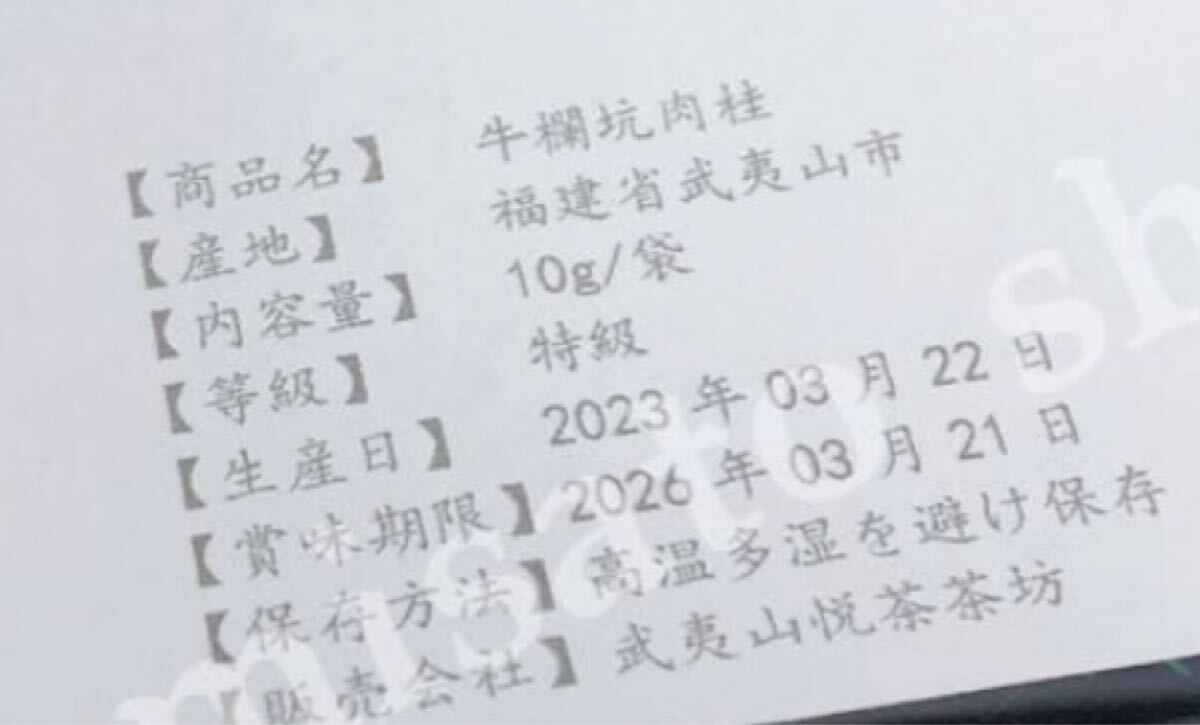 【商品名】 牛欄坑肉桂
【産地】 福建省武夷山市
【内容量】 10g/袋
【等級】 特級
【生産日】 2023 年 03 月 22 日
【賞味期限】 2026 年 03 月 21 日
【保存方法】 高温多湿を避け保存
【販売会社】 武夷山悦茶茶坊
misato sh